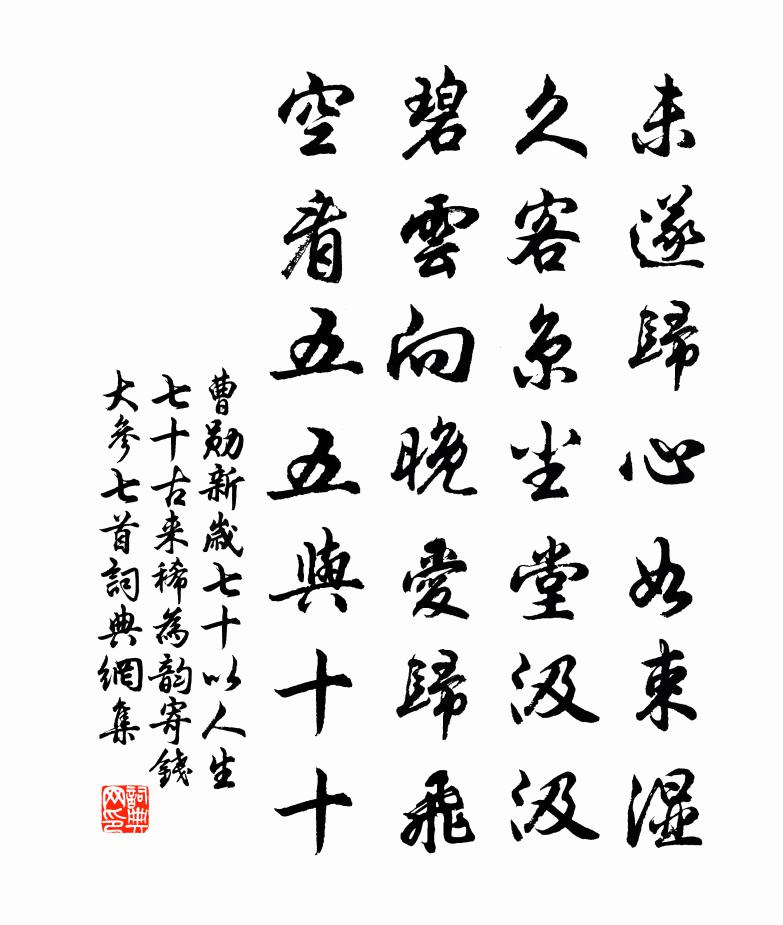 未遂歸心如束濕
久客京尘堂汲汲
碧雲向晚愛歸飛
空看五五與十十
曹勛新歲七十以人生
七十古来稀為韵寄錢
大參七首詞典網集
詞典网印